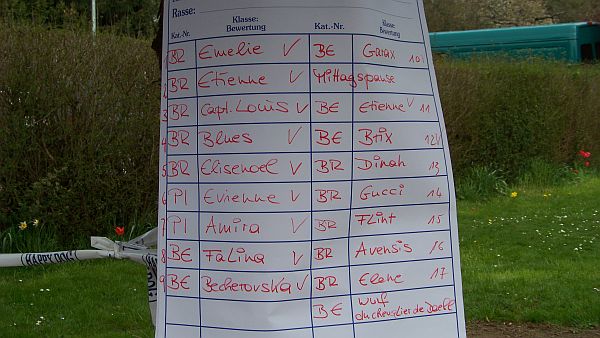 Rasse:
Kat.-Nr. Klasse: Bewertung Kat.-Nr. Klasse: Bewertung
1 BR Emelie ✓ BE Garax 10 ✓
2 BR Etienne ✓ Mittagspause
3 BR Capt. Louis ✓ BE Etienne ✓ 11
4 BR Blues ✓ BE Brix 12 ✓
5 BR Elisenoel ✓ BR Dinah 13
6 PI Evienne ✓ BR Gucci 14
7 PI Amira ✓ BR Flint 15
8 BE Falina ✓ BR Avensis 16
9 BE Becherovska ✓ BR Elene 17
BE Wurf
du chevalier de
HAPPY DOG